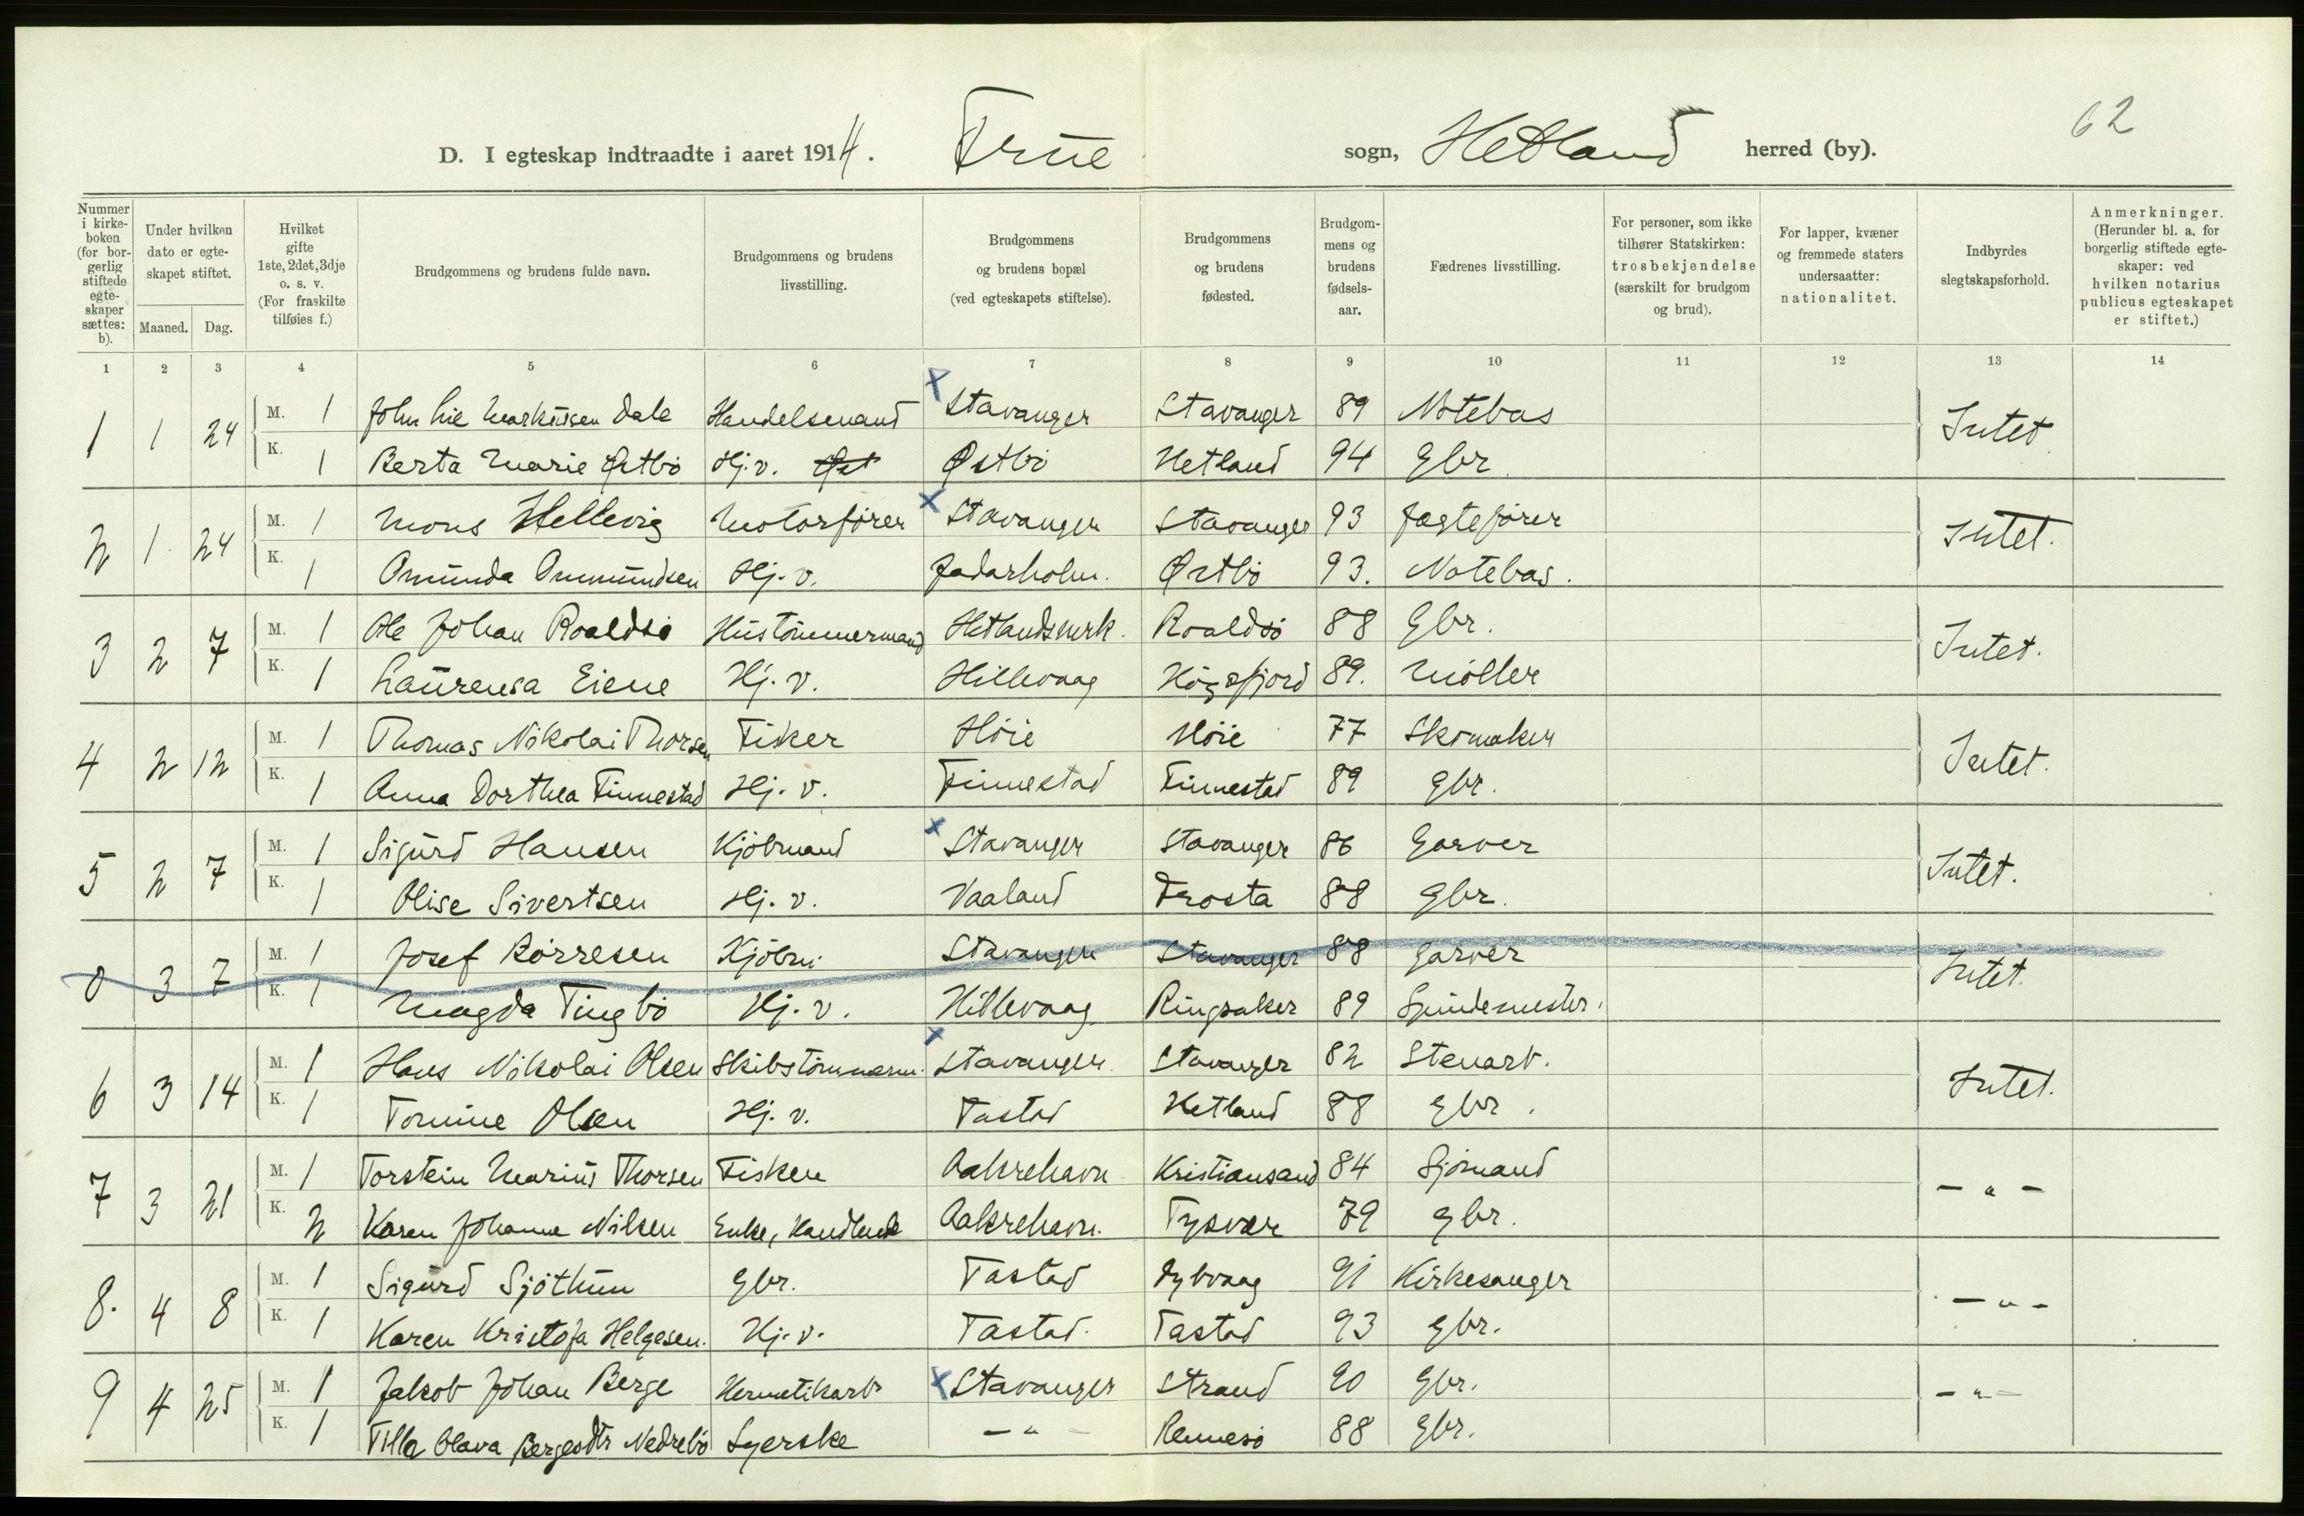 62
D. I egteskap indtraadte i aaret 1914. Frue sogn, Hetland herred (by).
Nummer i kirke-boken (for bor-gerlig stiftede egte-skaper sættes: b).
Under hvilken dato er egte-skapet stiftet.
Maaned. Dag.
Hvilket gifte 1ste, 2det, 3dje o. s. v. (For fraskilte tilføies f.)
Brudgommens og brudens fulde navn.
Brudgommens og brudens livsstilling.
Brudgommens og brudens bopæl (ved egteskapets stiftelse).
Brudgommens og brudens fødested.
Brudgom-mens og brudens fødsels-aar.
Fædrenes livsstilling.
For personer, som ikke tilhører Statskirken: trosbekjendelse (særskilt for brudgom og brud).
For lapper, kvæner og fremmede staters undersaatter: nationalitet.
Indbyrdes slegtskapsforhold.
Anmerkninger. (Herunder bl. a. for borgerlig stiftede egte-skaper: ved hvilken notarius publicus egteskapet er stiftet.)
1 2 3 4 5 6 7 8 9 10 11 12 13 14
1 1 24 M. 1 John Lie Markussen Dale Handelsmand x Stavanger Stavanger 89 Notebas Intet.
K. 1 Berta Marie Østbö Hj. v. Øst Østbö Hetland 94 Gbr.
2 1. 24 M. 1 Mons Hellevig Motorfører x Stavanger Stavanger 93 Jægtefører Intet.
K. 1 Omunda Ommundsen Hj. v. Jadarholm. Østbö 93. Notebas.
3 2 7 M. 1 Ole Johan Roaldsö Hustömmermand Hetlandsmrk. Roaldsö 88 Gbr. Intet.
K. 1 Laurensa Eiene Hj. v. Hillevaag Högsfjord 89. Möller
4 2 12 M. 1 Thomas Nikolai Thorsen Fisker Höie Höie 77 Skomaker Intet.
K. 1 Anna Dorthea Finnestad Hj. v. Finnestad Finnestad 89 Gbr.
5 2 7 M. 1 Sigurd Hansen Kjöbmand x Stavanger Stavanger 86 Garver Intet.
K. 1 Olise Sivertsen Hj. v. Vaaland Frosta 88 Gbr.
0 3 7 M. 1 Josef Börresen Kjöbm. Stavanger Stavanger 88 Garver Intet.
K. 1 Magda Tingbö Hj. v. Hillevaag Ringsaker 89 Spindemester.
6 3 14 M. 1 Hans Nikolai Olsen Skibstömmerm. x Stavanger. Stavanger 82 Stenarb. Intet.
K. 1 Tomine Olsen Hj. v. Tastad Hetland 88 Gbr.
7 3 21 M. 1 Torstein Marius Thorsen Fisker Aakrehavn Kristiansand 84 Sjömand - " -
K. 2 Karen Johanne Nilsen Enke, Handlende Aakrehavn. Tysvær 79 Gbr.
8. 4 8 M. 1 Sigurd Sjöthun Gbr. Tastad Dybvaag 91 Kirkesanger - " -
K. 1 Karen Kristofa Helgesen. Hj. v. Tastad. Tastad 93 Gbr.
9 4 25 M. 1 Jakob Johan Berge Hermetikarb x Stavanger Strand 90 Gbr. - " -
K. 1 Tilla Olava Bergesdtr Nedrebö Syerske - " - Rennesö 88 Gbr.